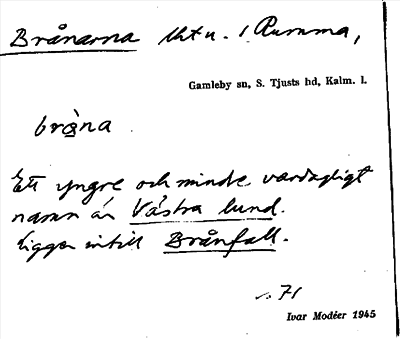 Brånarna tkt u. / Rumma,
Gamleby sn, S. Tjusts hd, Kalm. l.
bròna
Ett yngre och mindre vardagligt
namn är Västra lund.
Ligger intill Brånfall.
s. 71
Ivar Modéer 1945